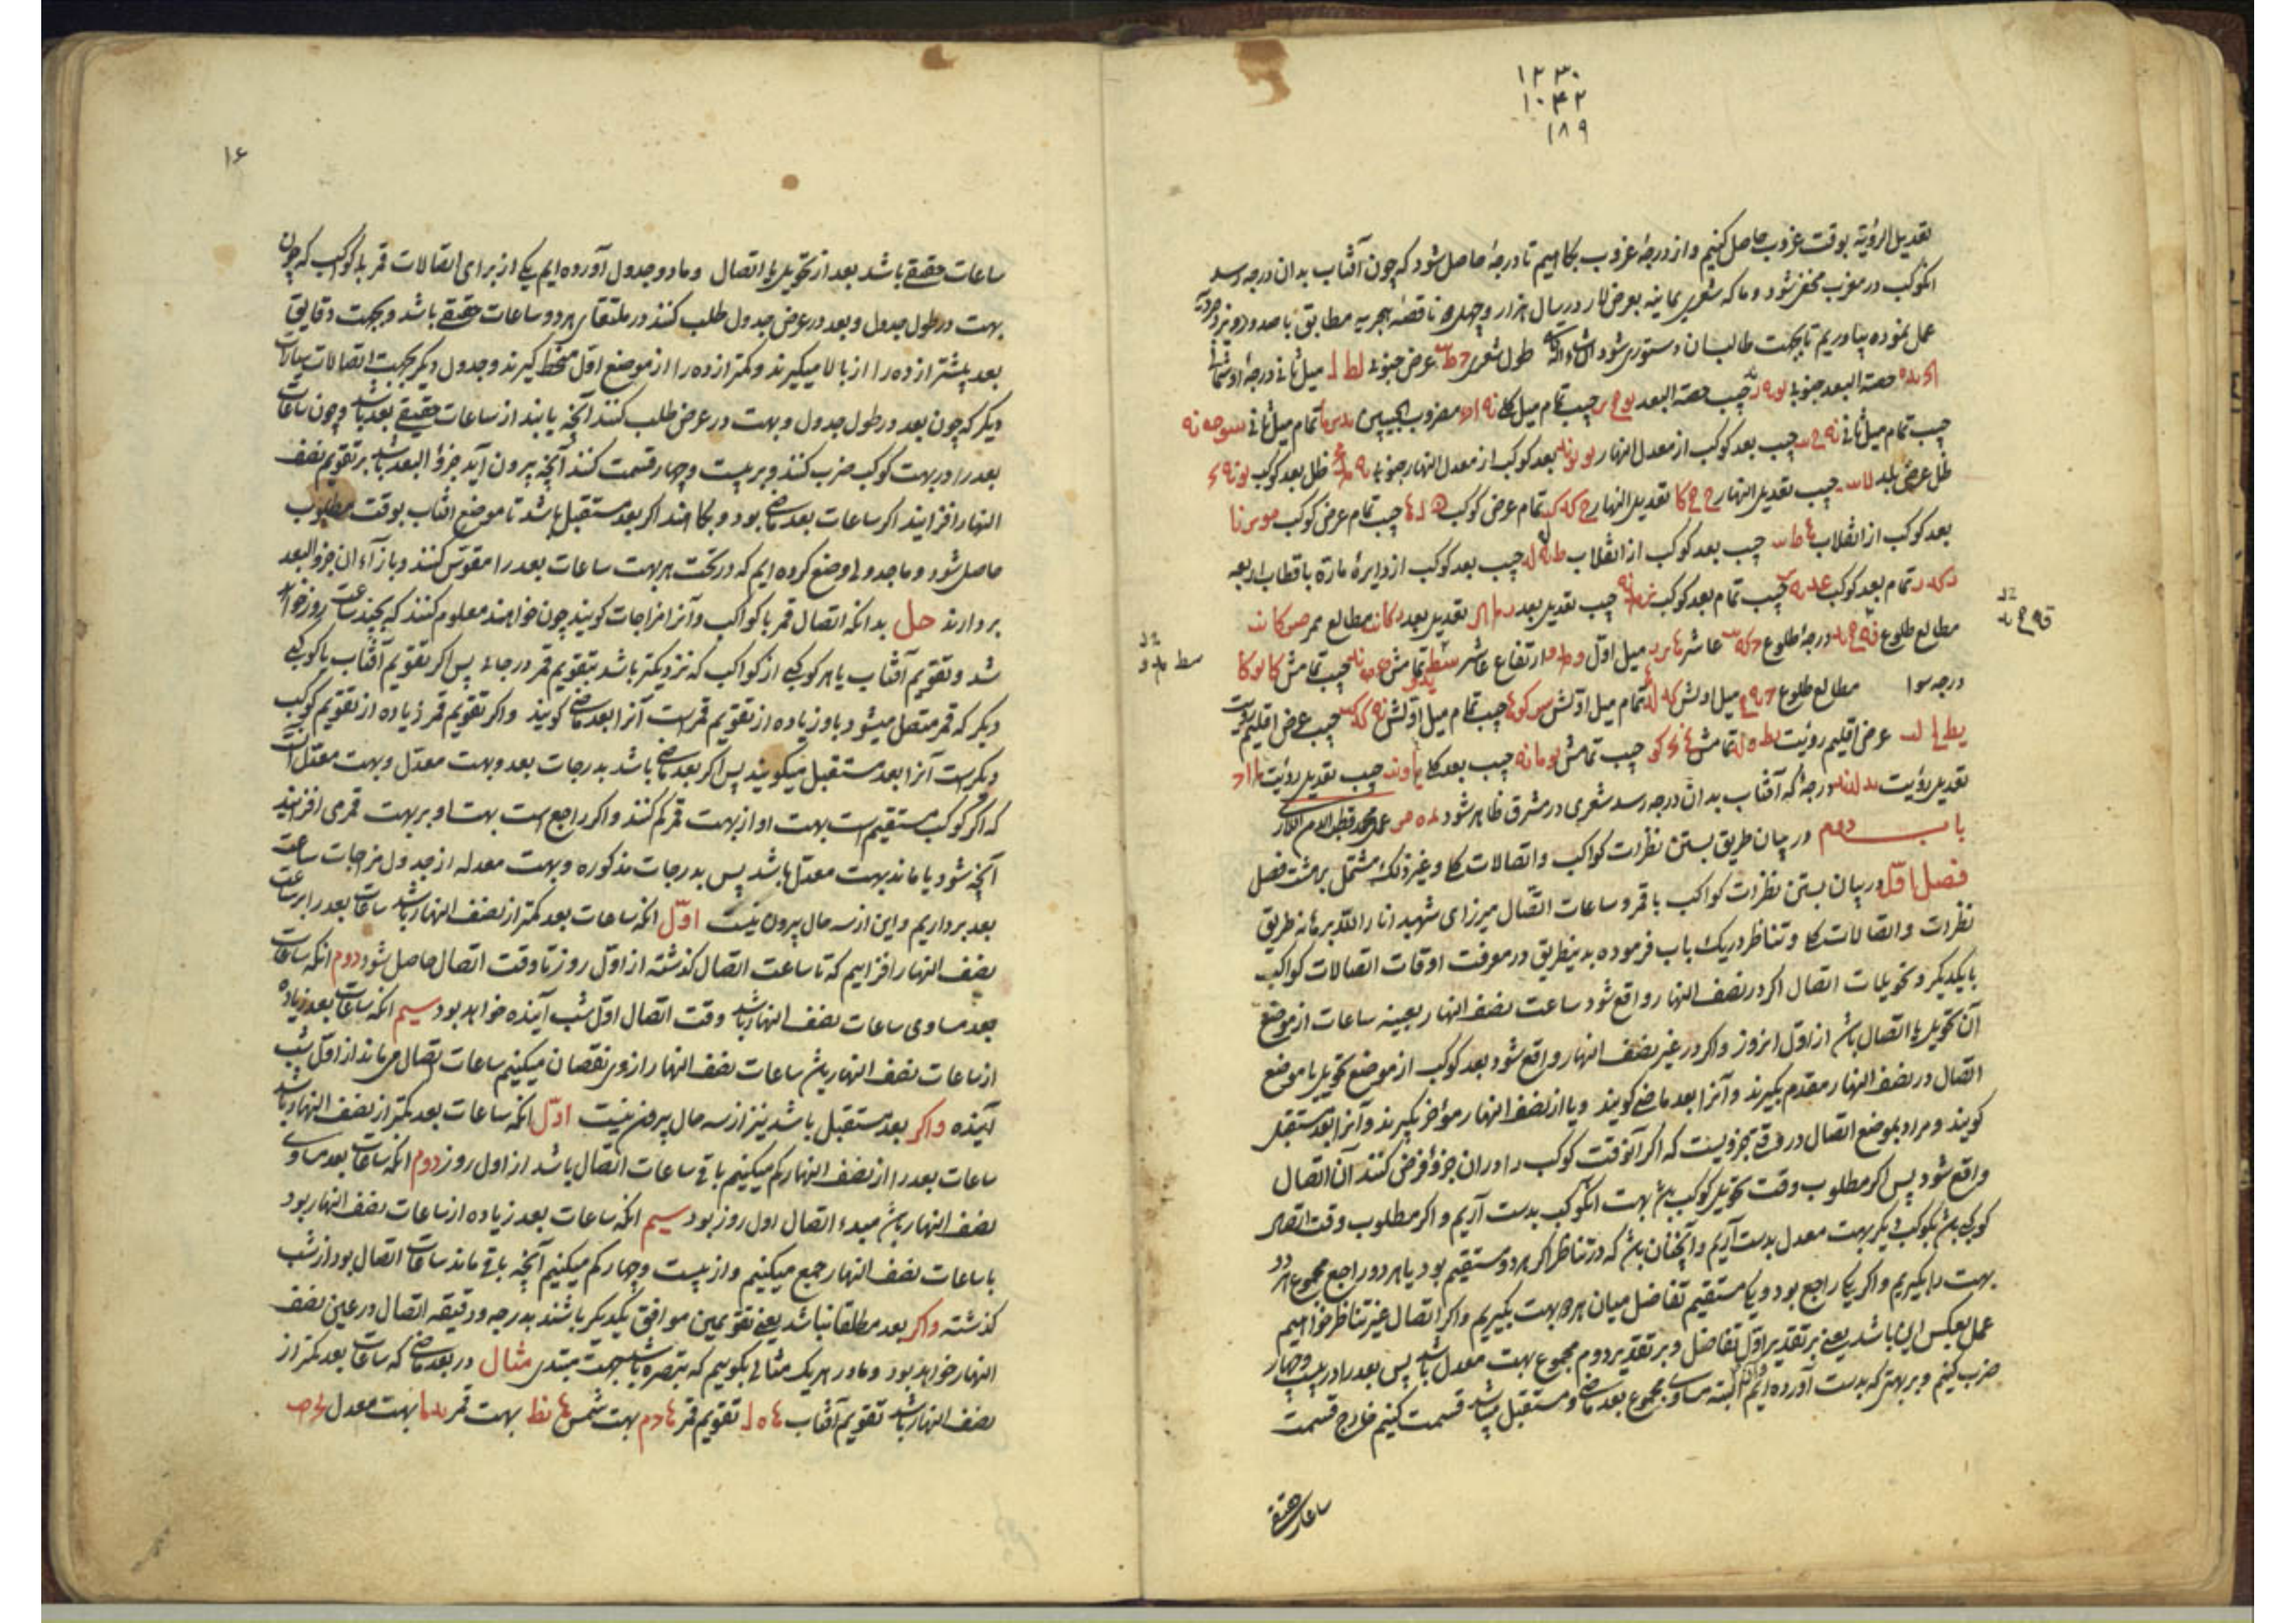 ۱۲۳۰
۱۰۴۲
۱۸۹
تعدیل الرؤیة بوقت غروب حاصل کنیم و از درجهٔ غروب بکاهیم تا درجهٔ حاصل شود که چون آفتاب بدان درجه رسد
انکوکب در مغرب مخفی شود و ما که شعری یمانیه بعرض لار در سال هزار و چهل ناقصهٔ هجریه مطابق
عمل نموده بیاوریم تا بجهت طالبان دستوری شود ان شاء الله طول شعری عرض جنوبی لط ل میل ثانی درجهٔ او شمالی
حصة البعد جنوبی جیب حصة البعد جیب تمام میل کلی مضروب الجیبین تمام میل ثانی
جیب تمام میل ثانی جیب بعد کوکب از معدل النهار بعد کوکب از معدل النهار جنوبی ظل بعد کوکب
ظل عرض بلد جیب تعدیل النهار تعدیل النهار تمام عرض کوکب جیب تمام عرض کوکب
بعد کوکب از انقلاب جیب بعد کوکب از انقلاب جیب بعد کوکب از دایرهٔ مارة باقطاب اربعه
تمام بعد کوکب جیب تمام بعد کوکب جیب تعدیل بعد تعدیل بعد مطالع ممر
مطالع طلوع درجهٔ طلوع عاشر میل اول ارتفاع عاشر تمامش جیب تمامش
درجه سوا مطالع طلوع میل اولش تمام میل اولش جیب تمام میل اولش جیب عرض اقلیم رؤیت
عرض اقلیم رؤیت تمامش جیب تمامش جیب بعد کلی جیب تعدیل رؤیت
تعدیل رؤیت درجه که آفتاب بدان درجه رسد شعری در مشرق ظاهر شود
باب دوم در بیان طریق بستن نظرات کواکب و اتصالات کلی و غیر ذلک مشتمل بر هشت فصل
فصل اول در بیان بستن نظرات کواکب با قمر و ساعات اتصال میرزای شهید انار الله برهانه طریق
نظرات و اتصالات کلی و تناظر در یک باب فرموده بدینطریق در معرفت اوقات اتصالات کواکب
بایکدیگر و تحویلات اتصال اگر در نصف النهار واقع شود ساعت نصف النهار بعینه ساعات از موضع
آن تحویل یا اتصال باشد از اول انروز و اگر در غیر نصف النهار واقع شود بعد کوکب از موضع تحویل یا موضع
اتصال در نصف النهار مقدم بگیرند و آنرا بعد ماضی گویند و یا از نصف النهار مؤخر بگیرند و آنرا بعد مستقبل
گویند و مراد بموضع اتصال در جزویست که اگر آنوقت کوکب را در ان جزؤ فرض کنند آن اتصال
واقع شود پس اگر مطلوب وقت تحویل کوکب باشد بهت انکوکب بدست آریم و اگر مطلوب وقت اتصال
کوکبی باشد بکوکب دیگر بهت معدل بدست آریم و آنچنان باشد که در تناظر اگر هر دو مستقیم بود یا هر دو راجع مجموع هر دو
بهت را بگیریم و اگر یکی راجع بود و یکی مستقیم تفاضل میان هر دو بهت بگیریم و اگر اتصال غیر تناظر خواهیم
عمل بعکس این باشد یعنی بر تقدیر اول تفاضل و بر تقدیر دوم مجموع بهت معدل باشد پس بعد را در بیست و چهار
ضرب کنیم و بر بهتی که بدست آورده ایم قسمت کنیم خارج قسمت
ساعات حقیقی
۱۶
ساعات حقیقی باشد بعد از تحویل یا اتصال و ما دو جدول آورده ایم یکی از برای اتصالات قمر با کواکب که چون
بهت در طول جدول و بعد در عرض جدول طلب کنند در ملتقای هر دو ساعات حقیقی باشد و بجهت دقایق
بعد بیشتر از ده را از بالا میگیرند و کمتر از ده را از موضع اول منحط گیرند و جدول دیگر بجهت اتصالات سیارات
دیگر که چون بعد در طول جدول و بهت در عرض طلب کنند آنچه یابند از ساعات حقیقی بعد باشد و چون ساعات
بعد را در بهت کوکب ضرب کنند و بر بیست و چهار قسمت کنند آنچه بیرون آید جزؤ البعد باشد بر تقویم نصف
النهار افزایند اگر ساعات بعد ماضی بود و بکاهند اگر بعد مستقبل باشد تا موضع افتاب بوقت مطلوب
حاصل شود و ما جدولی وضع کرده ایم که در تحت هر بهت ساعات بعد را مقوس کنند و بازاء ان جزو البعد
بردارند حل بدانکه اتصال قمر با کواکب و آنرا مزاجات گویند چون خواهند معلوم کنند که بچند ساعت روز خواهد
شد و تقویم آفتاب یا هر کوکبی از کواکب که نزدیکتر باشد بتقویم قمر درجاتی پس اگر تقویم آفتاب یا کوکبی
دیگر که قمر متصل میشود باو زیاده از تقویم قمرست آنرا بعد ماضی گویند و اگر تقویم قمر زیاده از تقویم کوکب
دیگرست آنرا بعد مستقبل میگویند پس اگر بعد ماضی باشد بدرجات بعد و بهت معدل و بهت معدل آنست
که اگر کوکب مستقیم است بهت او از بهت قمر کم کنند و اگر راجع است بهت او بر بهت قمر می افزایند
آنچه شود یا ماند بهت معدل باشد پس بدرجات مذکوره و بهت معدله از جدول مزاجات ساعت
بعد برداریم و این از سه حال بیرون نیست اول انکه ساعات بعد کمتر از نصف النهار باشد ساعات بعد را بر ساعت
نصف النهار افزاییم که تا ساعت اتصال گذشته از اول روز تا وقت اتصال حاصل شود دوم انکه ساعات
بعد مساوی ساعات نصف النهار باشد وقت اتصال اول شب آینده خواهد بود سیم انکه ساعات بعد زیاده
از ساعات نصف النهار باشد ساعات نصف النهار را از وی نقصان میکنیم ساعات اتصال می ماند از اول شب
آینده و اگر بعد مستقبل باشد نیز از سه حال بیرون نیست اول انکه ساعات بعد کمتر از نصف النهار باشد
ساعات بعد را از نصف النهار کم میکنیم باقی ساعات اتصال باشد از اول روز دوم انکه ساعات بعد مساوی
نصف النهار باشد مبدء اتصال اول روز بود سیم انکه ساعات بعد زیاده از ساعات نصف النهار بود
با ساعات نصف النهار جمع میکنیم و از بیست و چهار کم میکنیم آنچه باقی ماند ساعات اتصال بود از شب
گذشته و اگر بعد مطلقا نباشد یعنی تقویمین موافق یکدیگر باشند بدرجه و دقیقه اتصال در عین نصف
النهار خواهد بود و ما در هر یک مثالی بگوییم که تبصره باشد بجهت مبتدی مثال در بعد ماضی که ساعات بعد کمتر از
نصف النهار باشد تقویم آفتاب تقویم قمر بهت شمس بهت قمر بهت معدل